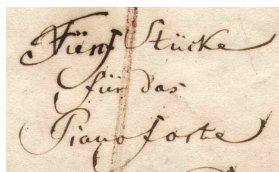 Fünf Stücke
für das
Piano forte